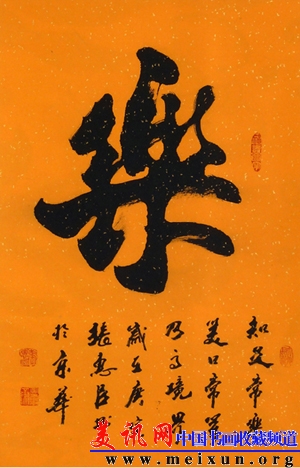 樂
知足常樂
口常
乃高境界
歲在庚寅
張惠臣
於京華
美讯网 中国书画收藏频道
www.meixun.org